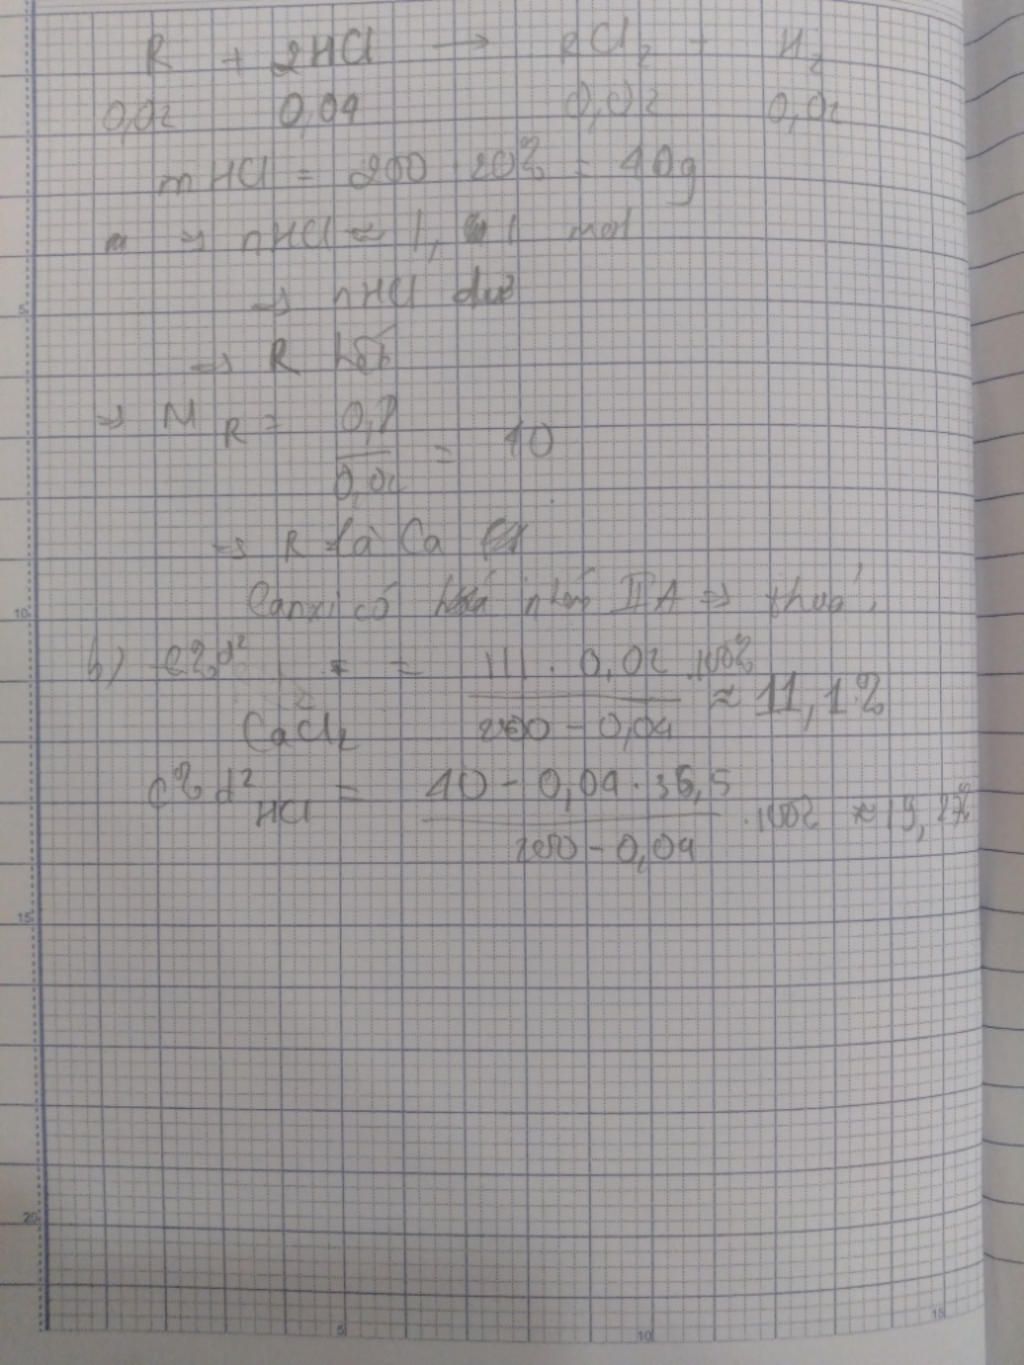 R + 2HCl → RCl2 + H2
0,02 0,04 0,02 0,02
mHCl = 200 . 20% = 40g
→ nHCl ≈ 1,1 mol
→ nHCl dư
→ R hết
→ MR = 0,8 / 0,02 = 40
→ R là Ca
Canxi có nhóm IIA →
b) C% d² CaCl2 = 111 . 0,02 / 200 - 0,04 . 100% ≈ 11,1%
C% d² HCl = 40 - 0,04 . 36,5 / 200 - 0,04 . 100% ≈ 19,27%
5
10
15
20
5
10
15